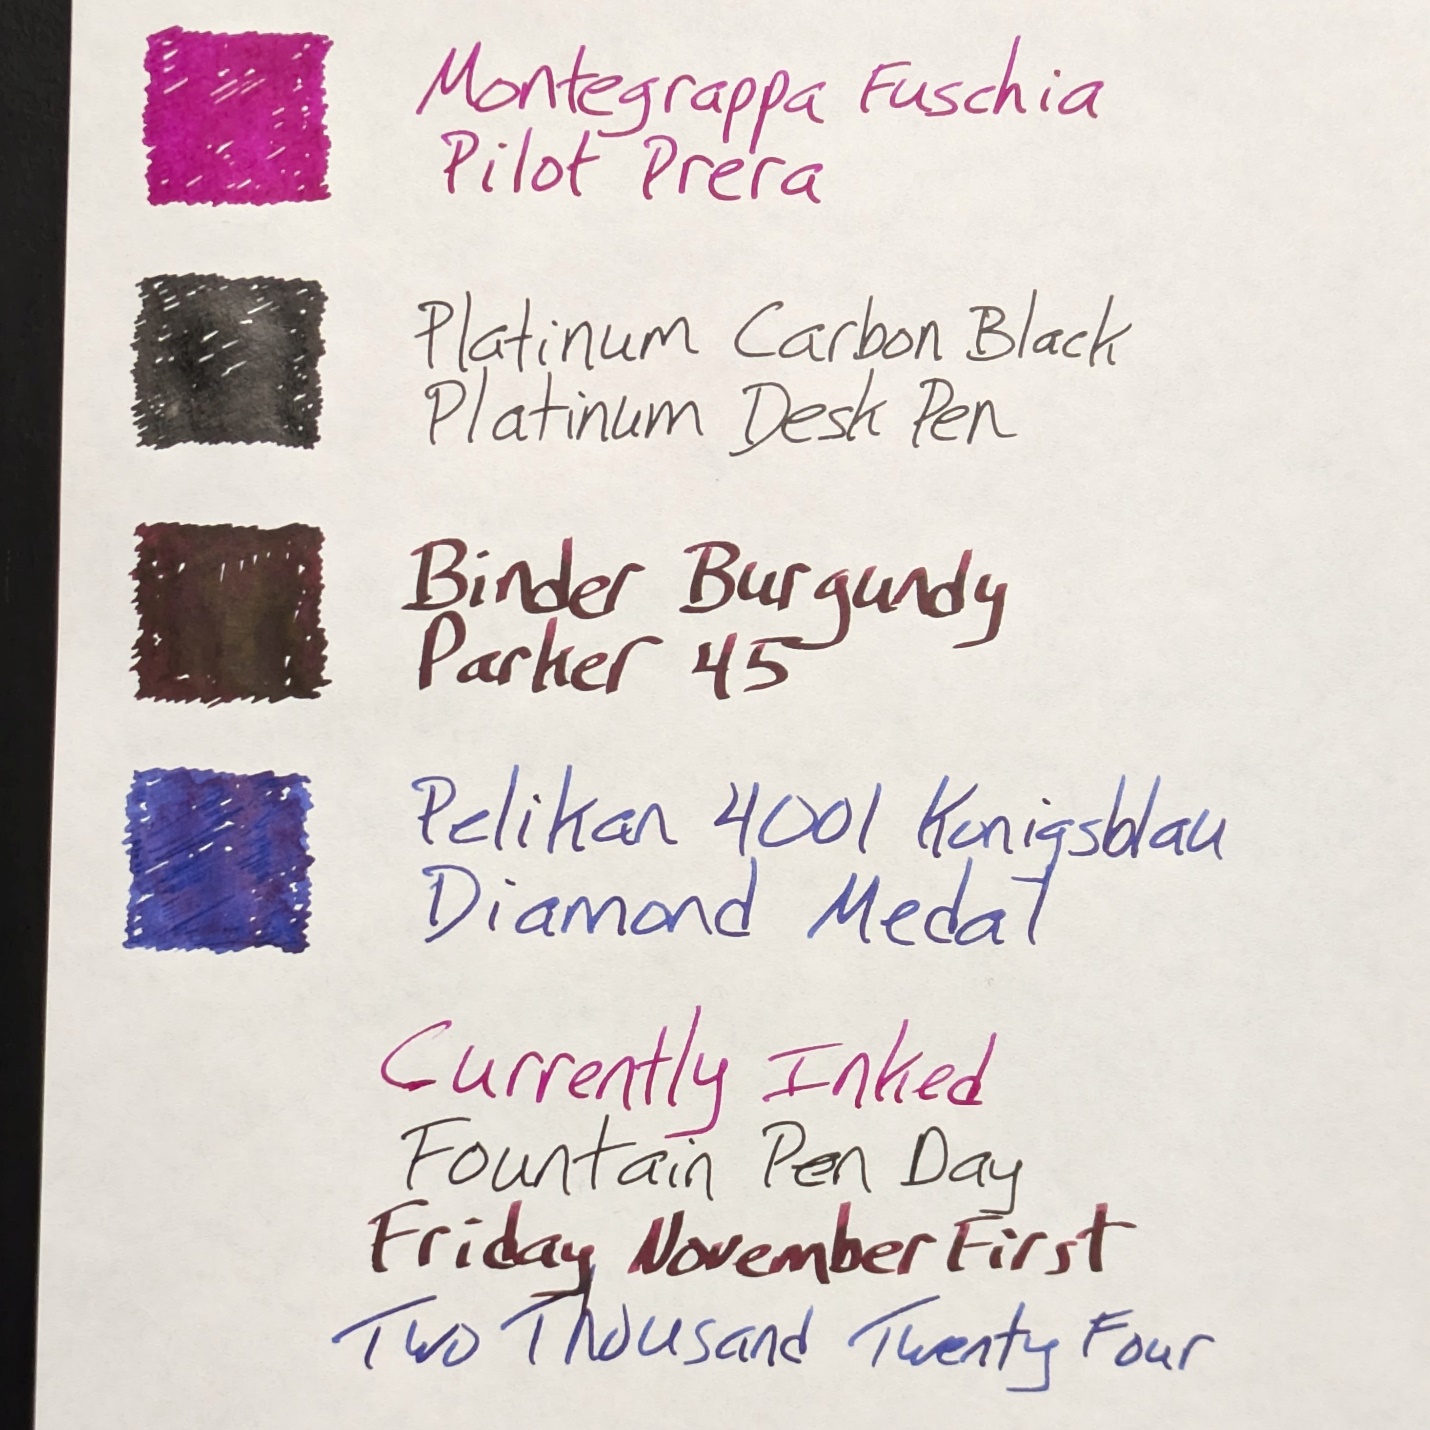 Montegrappa Fuschia
Pilot Prera
Platinum Carbon Black
Platinum Desk Pen
Binder Burgundy
Parker 45
Pelikan 4001 Konigsblau
Diamond Medal
Currently Inked
Fountain Pen Day
Friday November First
Two Thousand Twenty Four